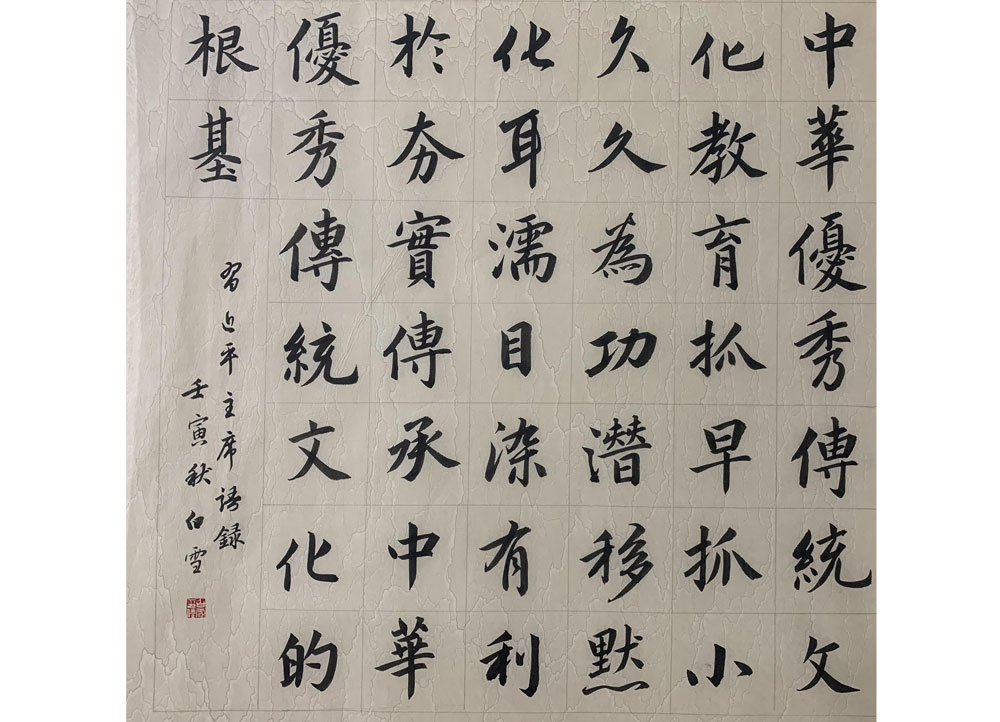 中華優秀傳統文
化教育抓早抓小
久久為功潛移默
化耳濡目染有利
於夯實傳承中華
優秀傳統文化的
根基
習近平主席語錄
壬寅秋白雪